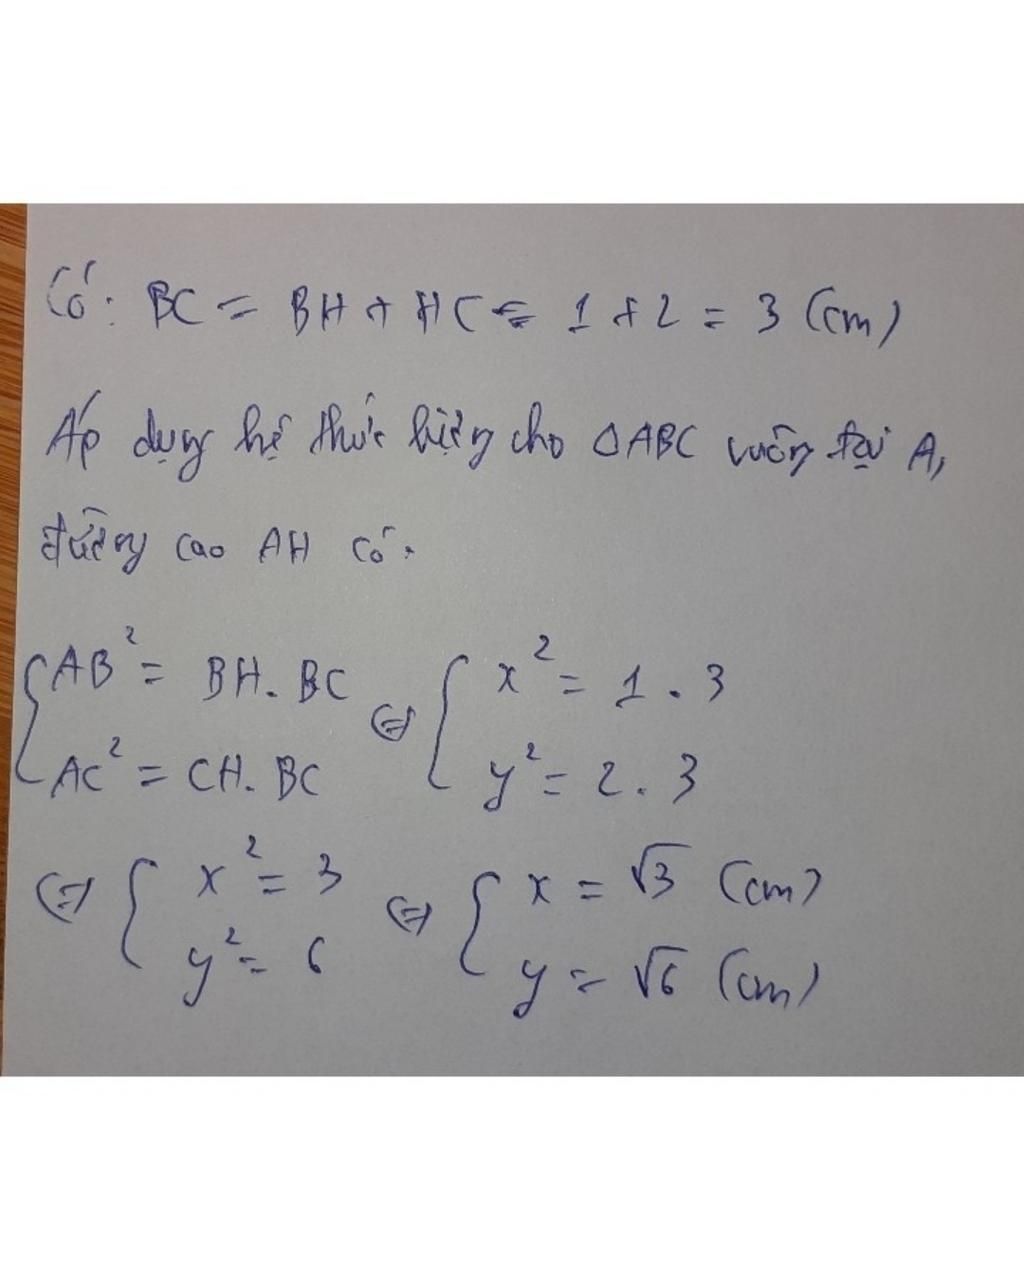 Có: BC = BH + HC = 1 + 2 = 3 (cm)
Áp dụng hệ thức lượng cho △ABC vuông tại A,
đường cao AH có:
{ AB² = BH. BC ⇔ { x² = 1 . 3
AC² = CH. BC y² = 2 . 3
⇔ { x² = 3 ⇔ { x = √3 (cm)
y² = 6 y = √6 (cm)